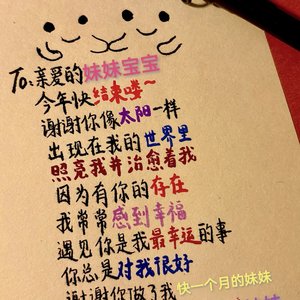 To:亲爱的妹妹宝宝
今年快结束喽~
谢谢你像太阳一样
出现在我的世界里
照亮我并治愈着我
因为有你的存在
我常常感到幸福
遇见你是我最幸运的事
你总是对我很好
谢谢你做了我快一个月的妹妹